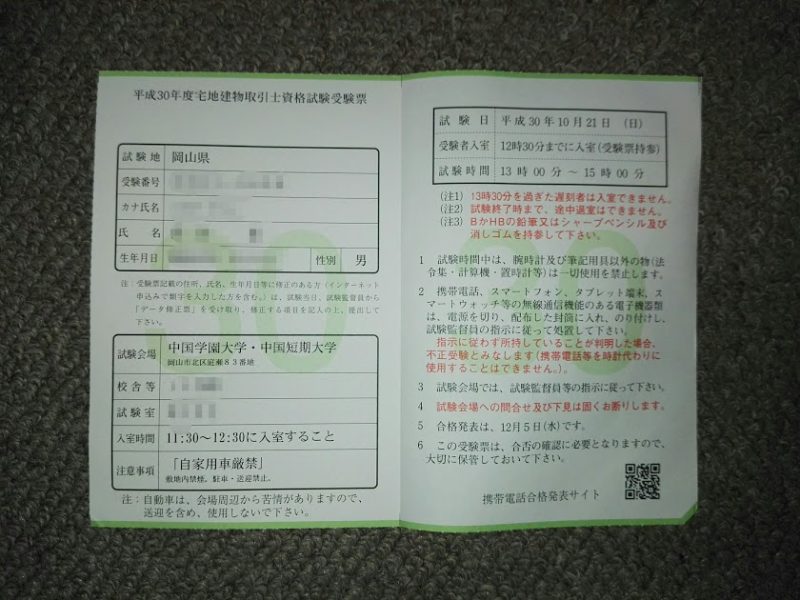 平成30年度宅地建物取引士資格試験受験票
試験地 岡山県
受験番号
カナ氏名
氏名
生年月日 性別 男
注：受験票記載の住所、氏名、生年月日等に修正のある方（インターネット
申込みで類字を入力した方を含む。）は、試験当日、試験監督員から
「データ修正票」を受け取り、修正する項目を記入の上、提出して
下さい。
試験会場 中国学園大学・中国短期大学
岡山市北区庭瀬８３番地
校舎等
試験室
入室時間 11:30～12:30に入室すること
注意事項 「自家用車厳禁」
敷地内禁煙。駐車・送迎禁止。
注：自動車は、会場周辺から苦情がありますので、
送迎を含め、使用しないで下さい。
試験日 平成30年10月21日（日）
受験者入室 12時30分までに入室（受験票持参）
試験時間 13時00分～15時00分
（注1） 13時30分を過ぎた遅刻者は入室できません。
（注2） 試験終了時まで、途中退室はできません。
（注3） BかHBの鉛筆又はシャープペンシル及び
消しゴムを持参して下さい。
1 試験時間中は、腕時計及び筆記用具以外の物（法
令集・計算機・置時計等）は一切使用を禁止します。
2 携帯電話、スマートフォン、タブレット端末、ス
マートウォッチ等の無線通信機能のある電子機器類
は、電源を切り、配布した封筒に入れ、のり付けし、
試験監督員の指示に従って処置して下さい。
指示に従わず所持していることが判明した場合、
不正受験とみなします（携帯電話等を時計代わりに
使用することはできません。）。
3 試験会場では、試験監督員等の指示に従って下さい。
4 試験会場への問合せ及び下見は固くお断りします。
5 合格発表は、12月5日（水）です。
6 この受験票は、合否の確認に必要となりますので、
大切に保管しておいて下さい。
携帯電話合格発表サイト